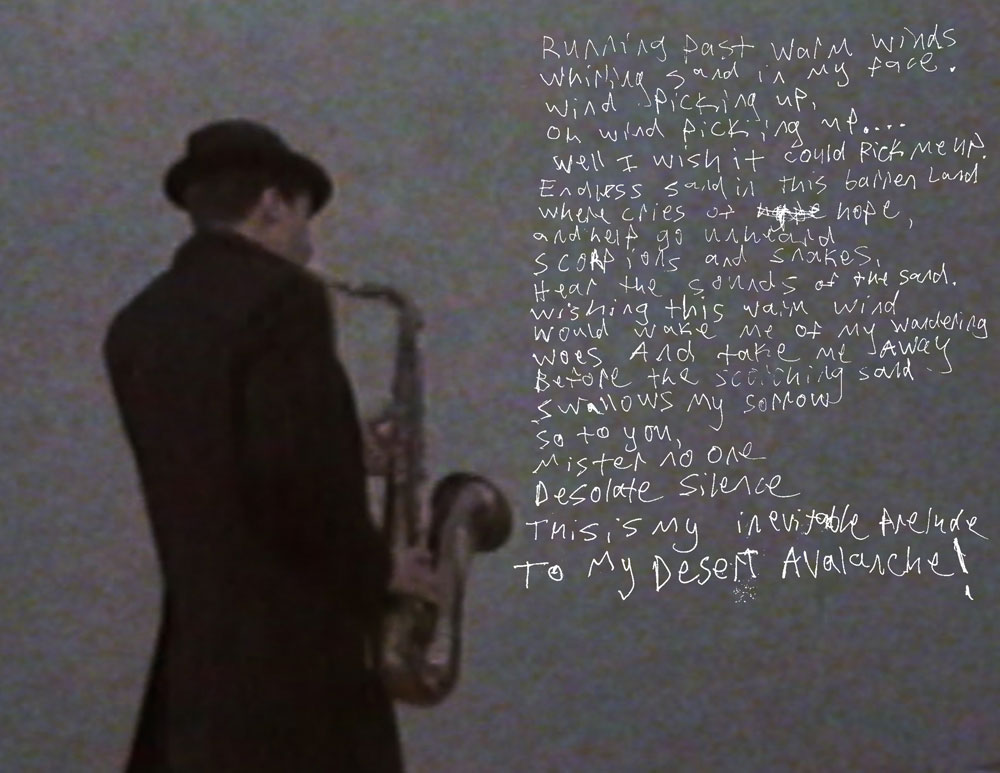 Running past warm winds
whirling sand in my face.
wind picking up,
oh wind picking up....
well I wish it could Pick me up.
Endless sand in this barren Land
where cries of hope,
and help go unheard
scorpions and snakes.
Hear the sounds of the sand.
wishing this warm wind
would wake me of my wandering
woes And take me AWAY
Before the scorching sand
swallows my sorrow
so to you,
mister no one
Desolate silence
This is my inevitable prelude
To My Desert Avalanche!